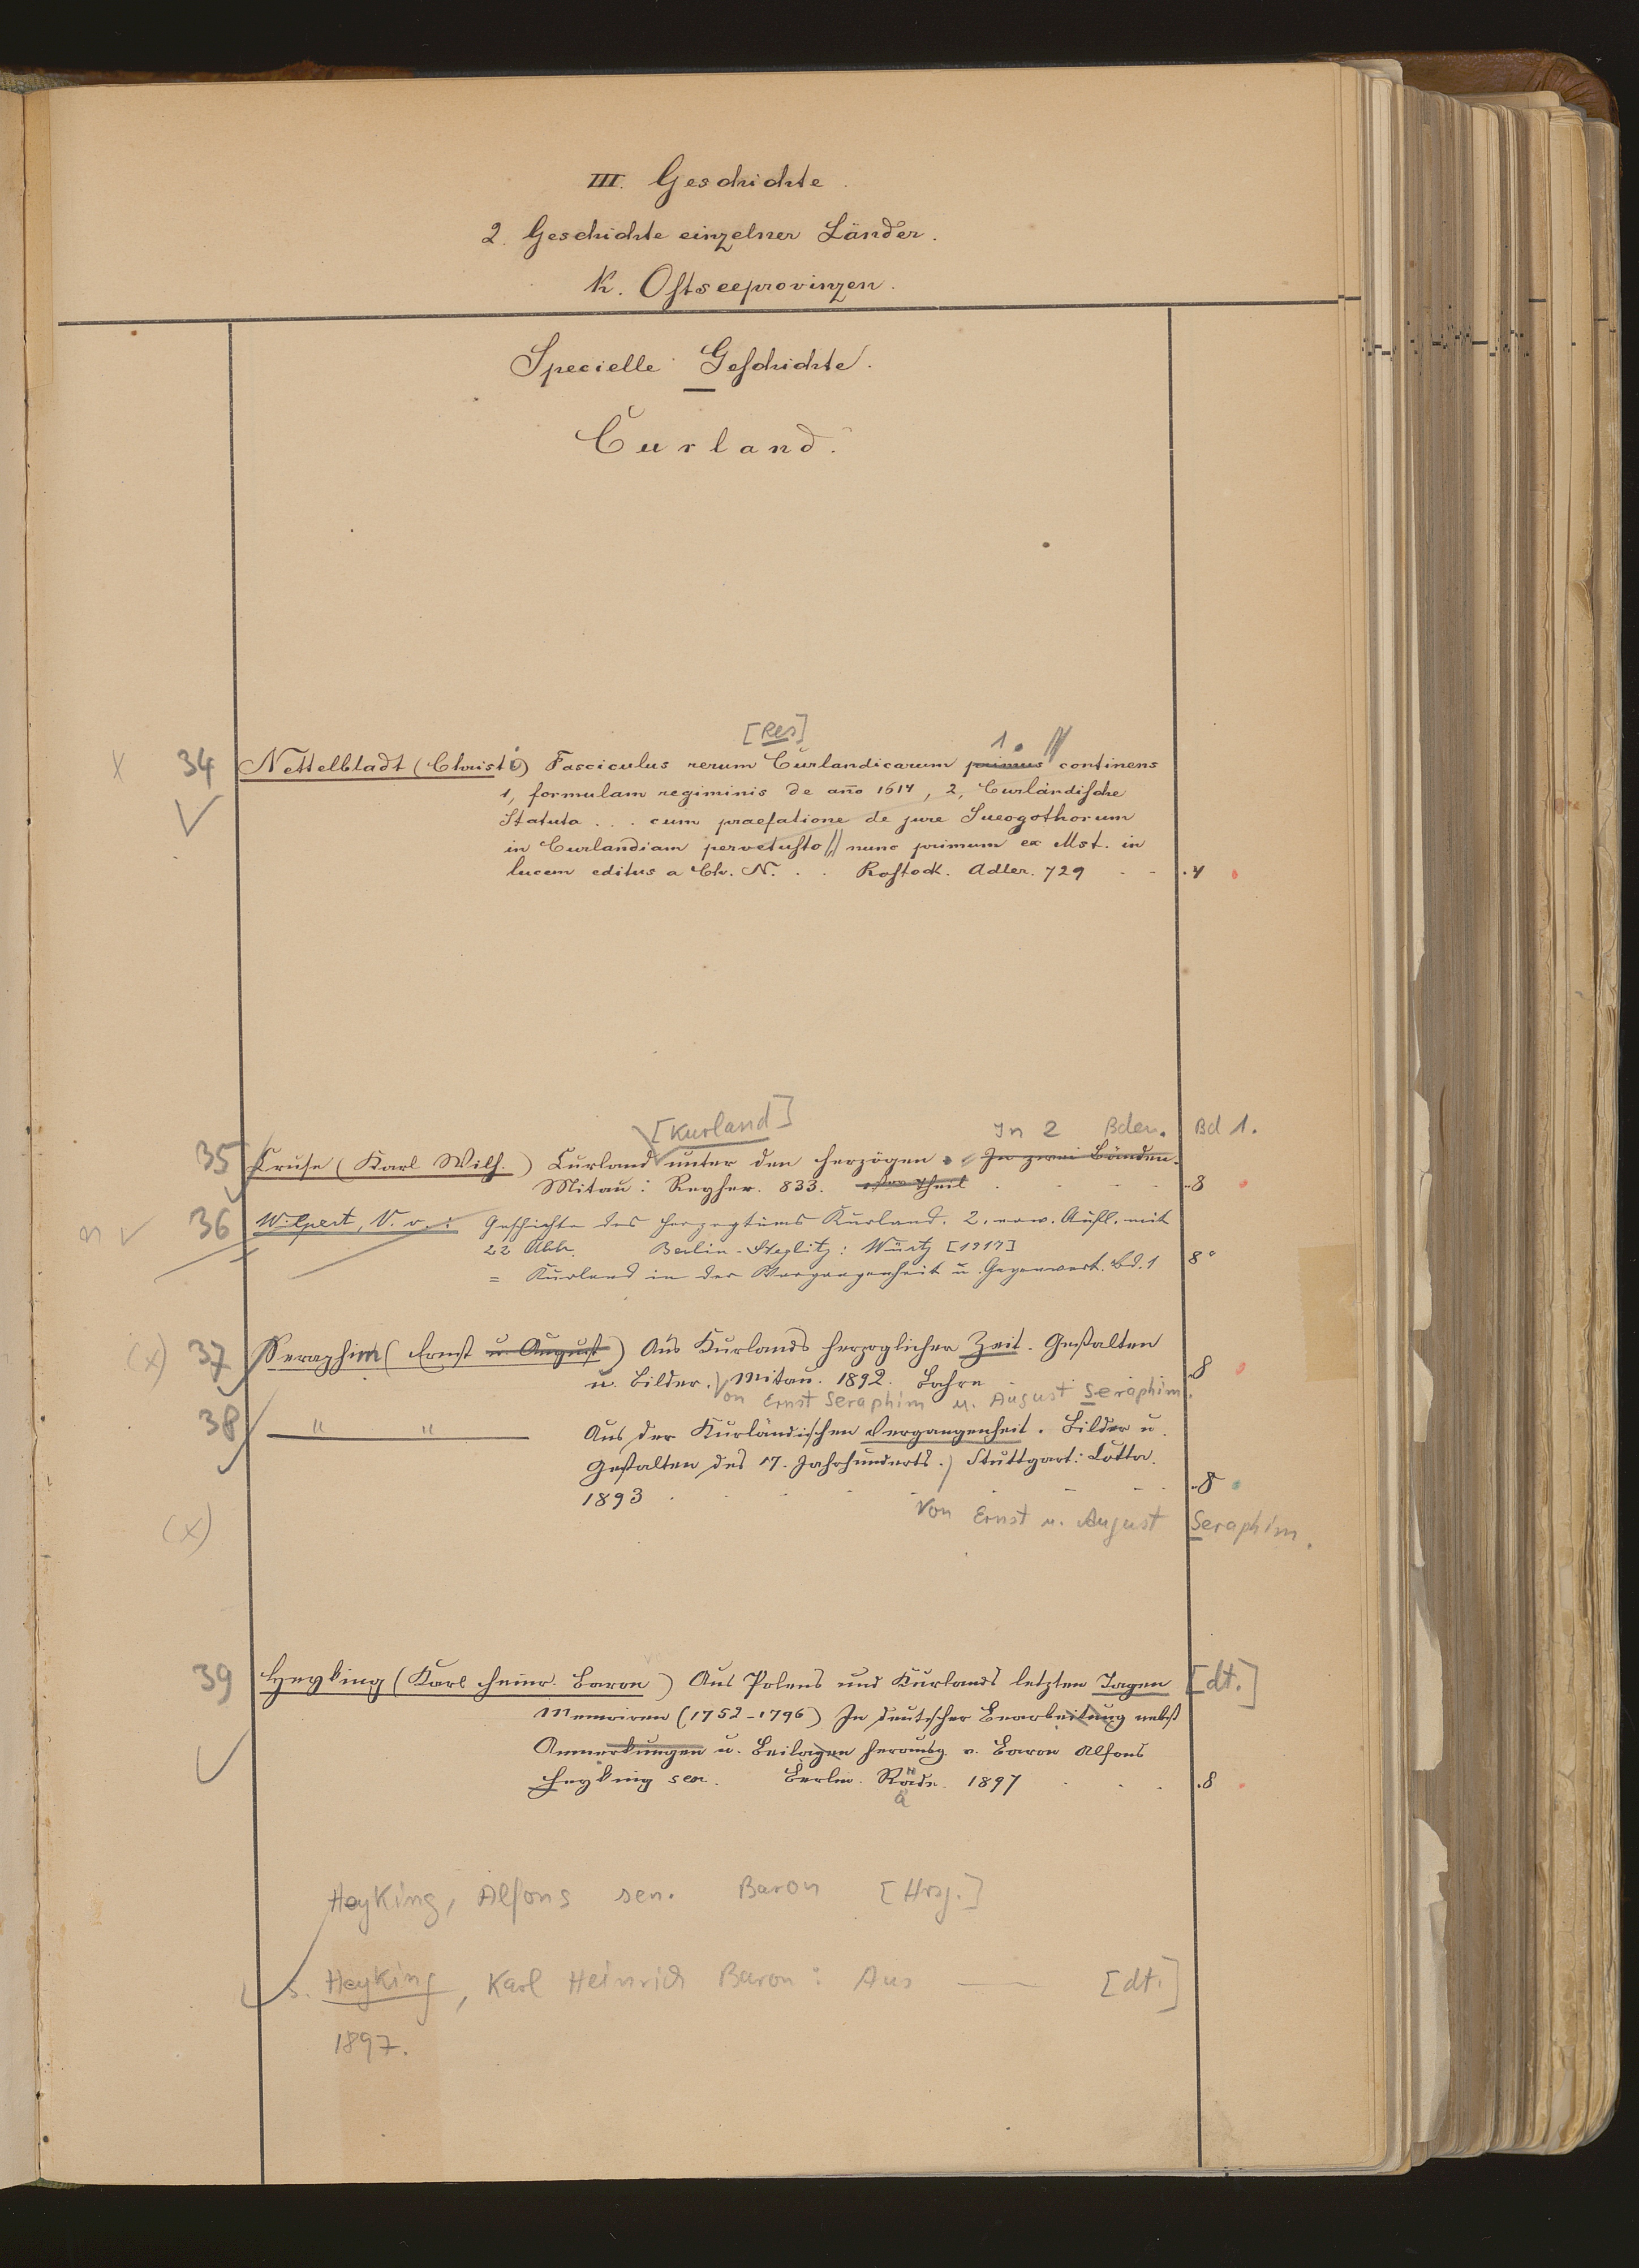 III. Geschichte.
2. Geschichte einzelner Länder.
k. Ostseeprovinzen.
Specielle Geschichte.
Curland.
[Res]
1.
x 34 Nettelbladt (Christ.) Fasciculus rerum Curlandicarum primus continens
1, formulam regiminis de año 1617, 2, Curländische
Statuta . . . cum praefatione de jure Sueogothorum
in Curlandiam pervetusto // nunc primum ex Mst. in
lucem editus a Ch. N. . . Rostock. Adler. 729 - - . 4
[Kurland] In 2 Bden. Bd 1.
35 Cruse (Karl Wilh.) Curland unter den Herzögen. In zwei Bänden.
Mitau: Reyher. 833. Theil . - - - 8
n 36 Wilpert, V. v.: Geschichte des Herzogtums Kurland. 2. erw. Aufl. mit
22 Abb. Berlin-Steglitz: Würtz [1917]
= Kurland in der Vergangenheit u. Gegenwart. Bd. 1 8°
(x) 37 Seraphim (Ernst u. August) Aus Kurlands herzoglicher Zeit. Gestalten
u. Bilder. Mitau. 1892. Behre - 8
Von Ernst Seraphim u. August Seraphim.
38 " " Aus der Kurländischen Vergangenheit. Bilder u.
Gestalten des 17. Jahrhunderts. Stuttgart: Cotta.
1893 . - - - - 8
(x) Von Ernst u. August Seraphim.
39 Heyking (Karl Heinr. Baron) Aus Polens und Kurlands letzten Tagen [dt.]
Memoiren (1752-1796) In deutscher Bearbeitung nebst
Anmerkungen u. Beilagen herausg. v. Baron Alfons
Heyking sen. Berlin. Räde. 1897 . . . . 8
ä
Heyking, Alfons sen. Baron [Hrsg.]
s. Heyking, Karl Heinrich Baron: Aus — [dt.]
1897.